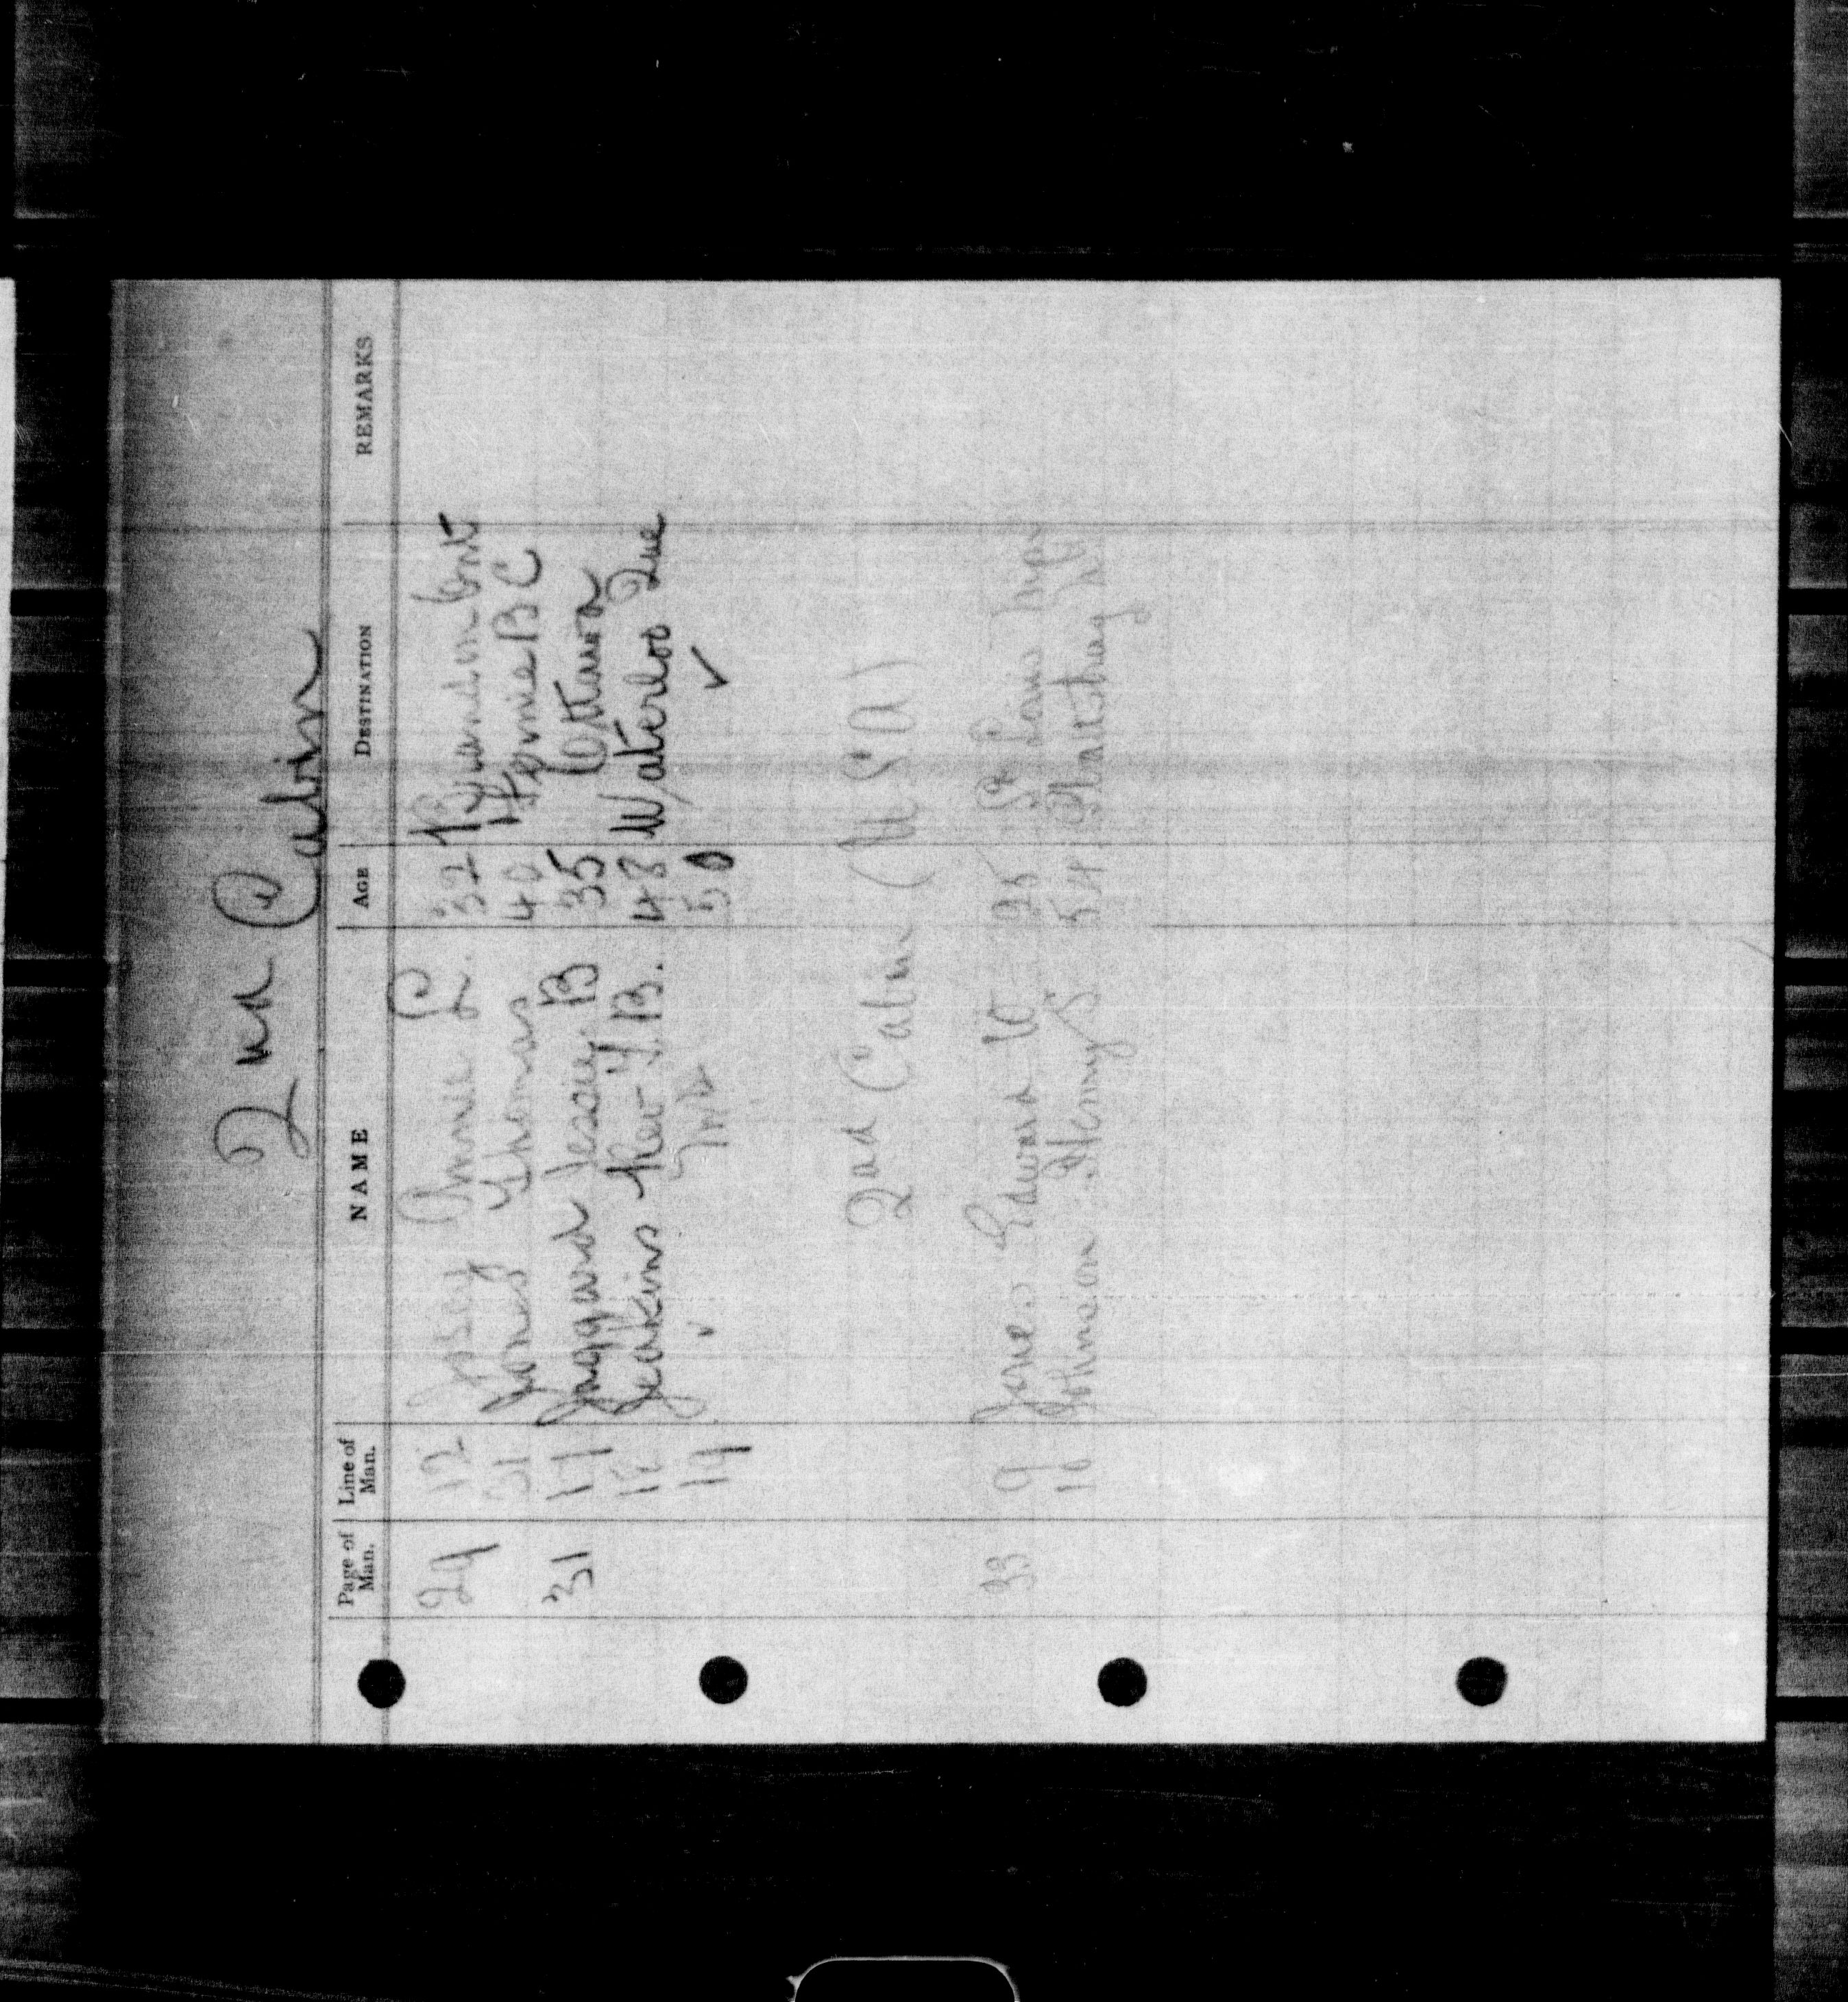 2nd Cabin
Page of Man. Line of Man. NAME AGE DESTINATION REMARKS
29 12 Josey Annie L. 32 Ont
21 Jones Thomas 40 Fernie B C
31 17 Jaggard Jessie B 35 Ottawa
18 Jeakins Rev. B. 48 Waterloo Que
19 " Mrs 50 ✓
2nd Cabin (U S A)
33 9 Jones Edward W 25 St Louis
10 Johnson Henry S 54